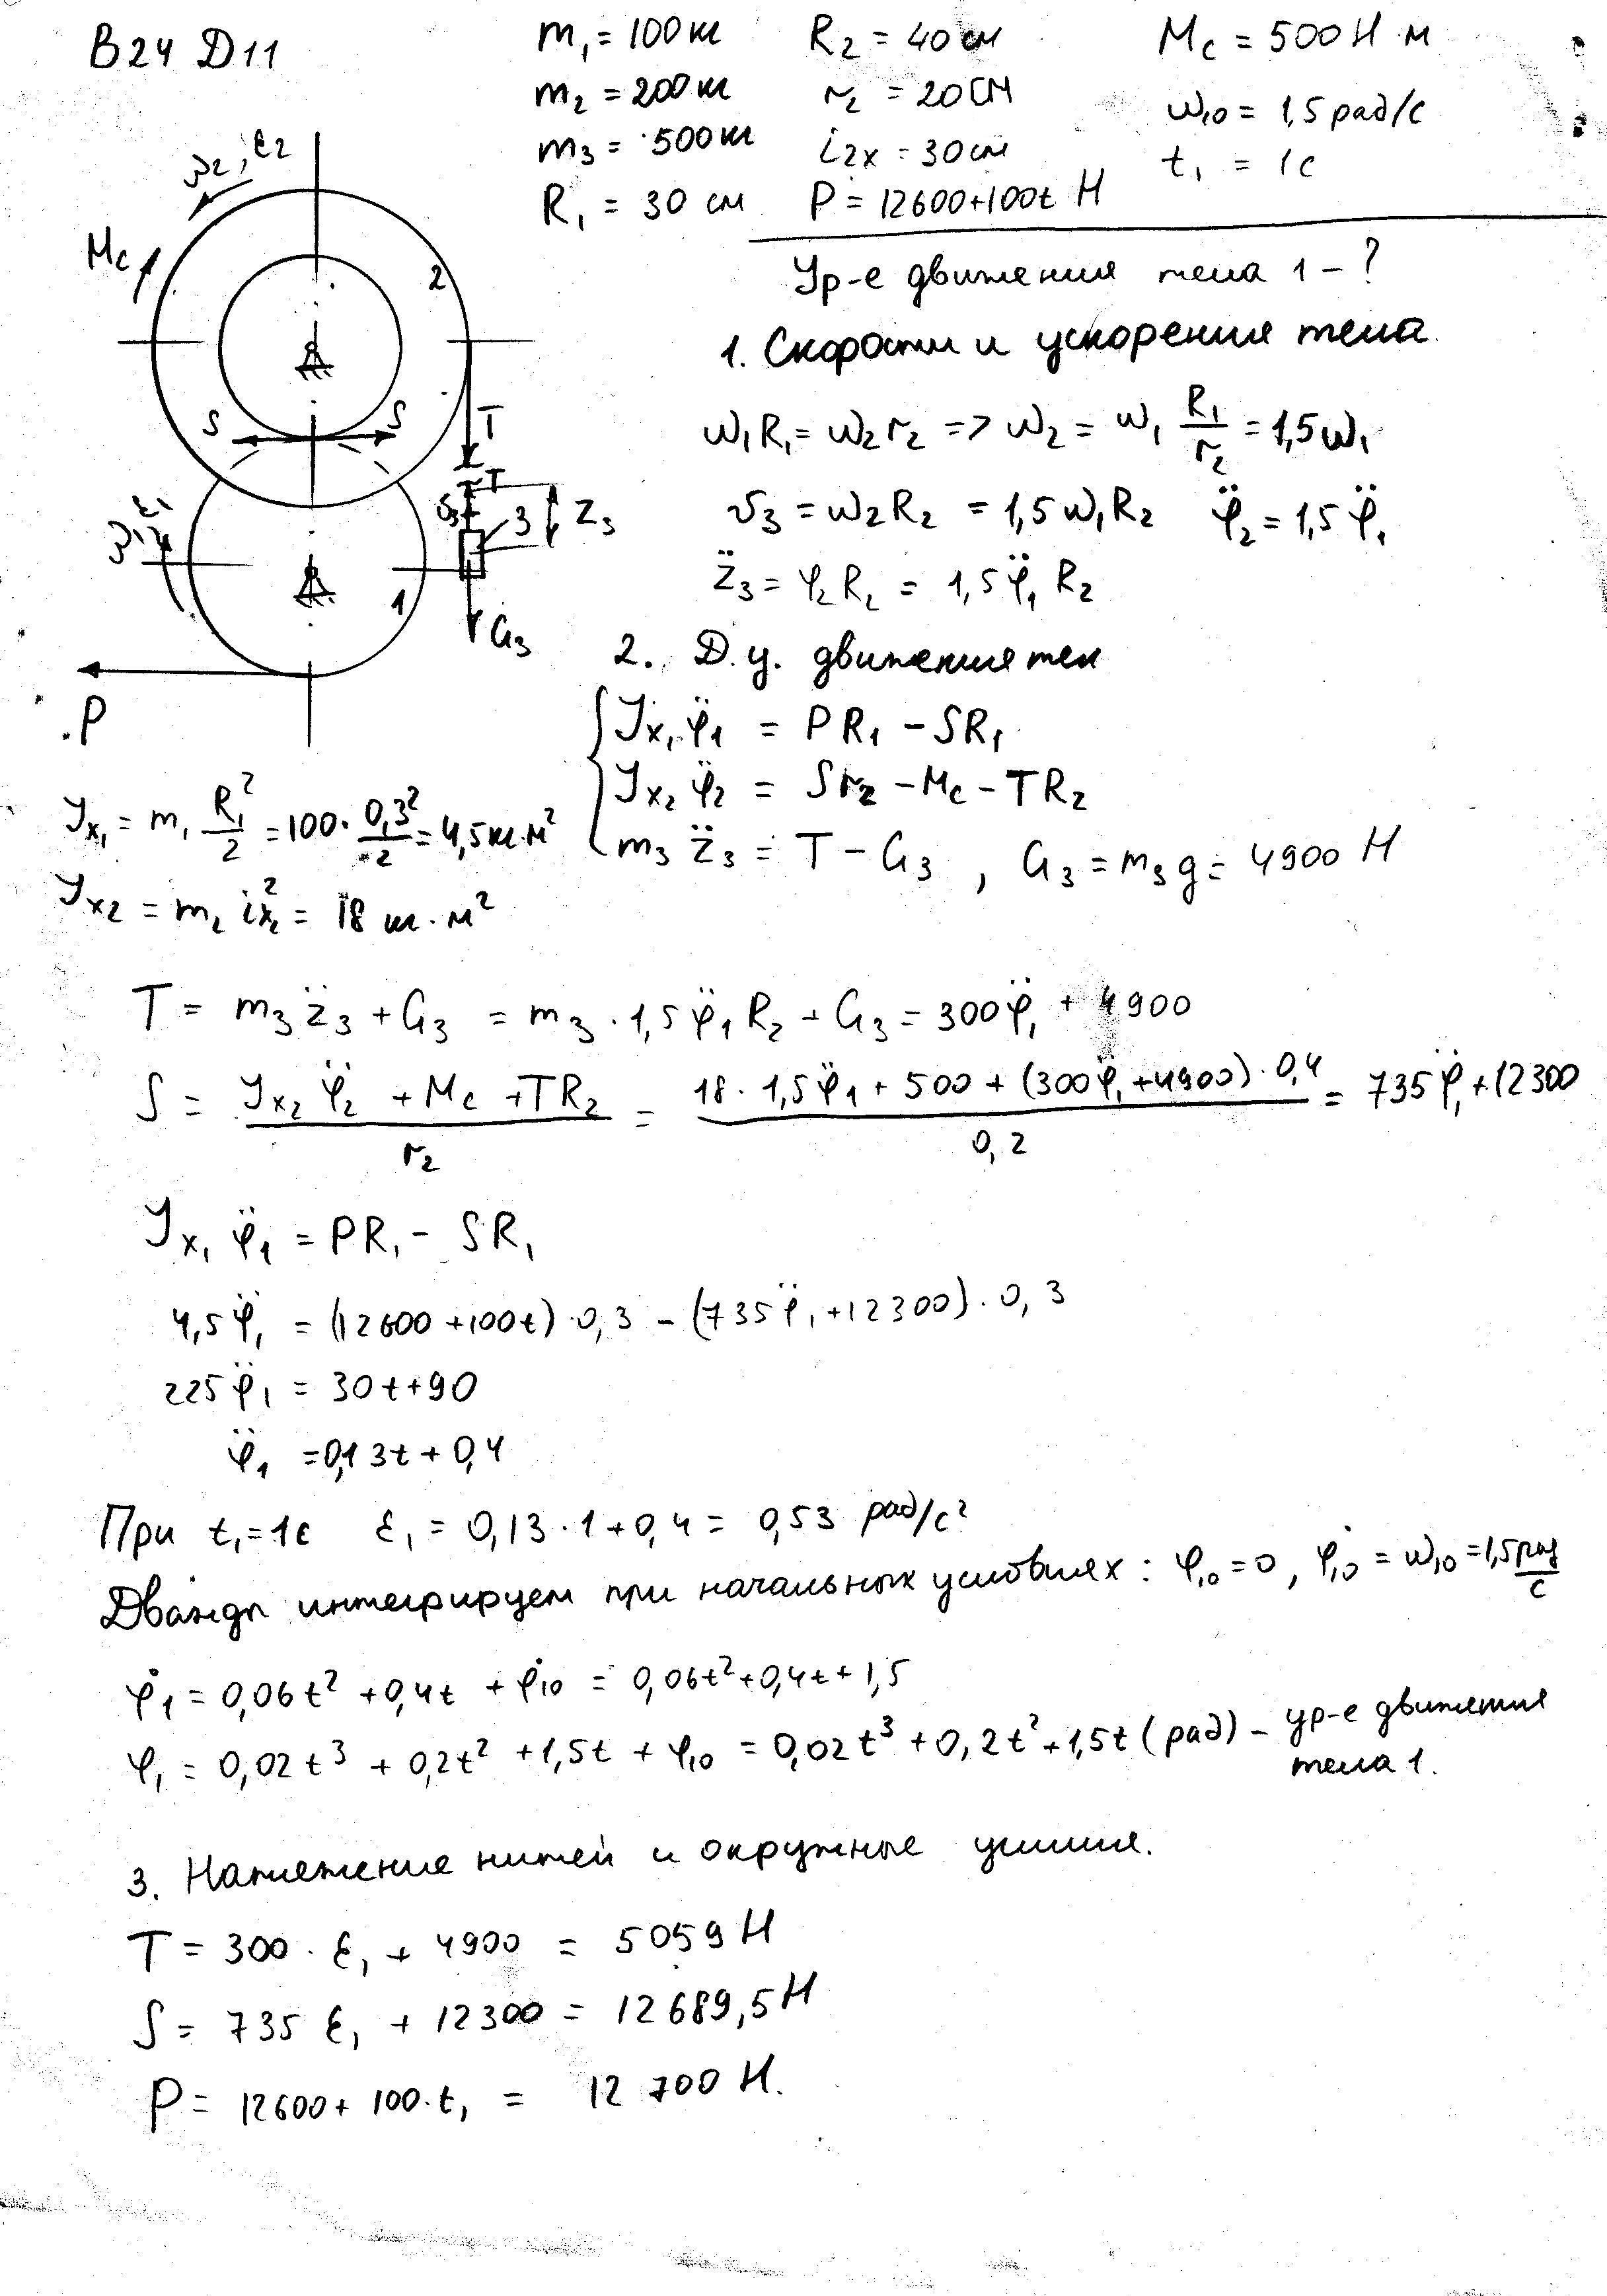 В24 Д11
m₁ = 100 кг
m₂ = 200 кг
m₃ = 500 кг
R₁ = 30 см
R₂ = 40 см
r₂ = 20 см
i₂ₓ = 30 см
P = 12600+100t Н
Mс = 500 Н·м
ω₁₀ = 1,5 рад/с
t₁ = 1с
ω₂, ε₂
Mс
2
S S
T
T
v₃
3
z₃
ω₁ ε₁
1
G₃
P
Ур-е движения тела 1 – ?
1. Скорости и ускорения тела.
ω₁R₁ = ω₂r₂ => ω₂ = ω₁ R₁/r₂ = 1,5ω₁
v₃ = ω₂R₂ = 1,5ω₁R₂ φ̈₂ = 1,5φ̈₁
z̈₃ = φ̈₂R₂ = 1,5φ̈₁R₂
2. Д.у. движения тел
Jx₁φ̈₁ = PR₁ – SR₁
Jx₂φ̈₂ = Sr₂ – Mс – TR₂
m₃z̈₃ = T – G₃ , G₃ = m₃g = 4900 Н
Jx₁ = m₁ R₁²/2 = 100 · 0,3²/2 = 4,5 кг·м²
Jx₂ = m₂ iₓ₂² = 18 кг·м²
T = m₃z̈₃ + G₃ = m₃ · 1,5φ̈₁R₂ + G₃ = 300φ̈₁ + 4900
S = (Jx₂φ̈₂ + Mс + TR₂)/r₂ = (18 · 1,5φ̈₁ + 500 + (300φ̈₁ + 4900) · 0,4)/0,2 = 735φ̈₁ + 12300
Jx₁φ̈₁ = PR₁ – SR₁
4,5φ̈₁ = (12600 + 100t) · 0,3 – (735φ̈₁ + 12300) · 0,3
225φ̈₁ = 30t + 90
φ̈₁ = 0,13t + 0,4
При t₁ = 1с ε₁ = 0,13 · 1 + 0,4 = 0,53 рад/с²
Дважды интегрируем при начальных условиях: φ₁₀ = 0, φ̇₁₀ = ω₁₀ = 1,5 рад/с
φ̇₁ = 0,06t² + 0,4t + φ̇₁₀ = 0,06t² + 0,4t + 1,5
φ₁ = 0,02t³ + 0,2t² + 1,5t + φ₁₀ = 0,02t³ + 0,2t² + 1,5t (рад) – ур-е движения
тела 1.
3. Натяжение нитей и окружные усилия.
T = 300 · ε₁ + 4900 = 5059 Н
S = 735 ε₁ + 12300 = 12689,5 Н
P = 12600 + 100·t₁ = 12700 Н.